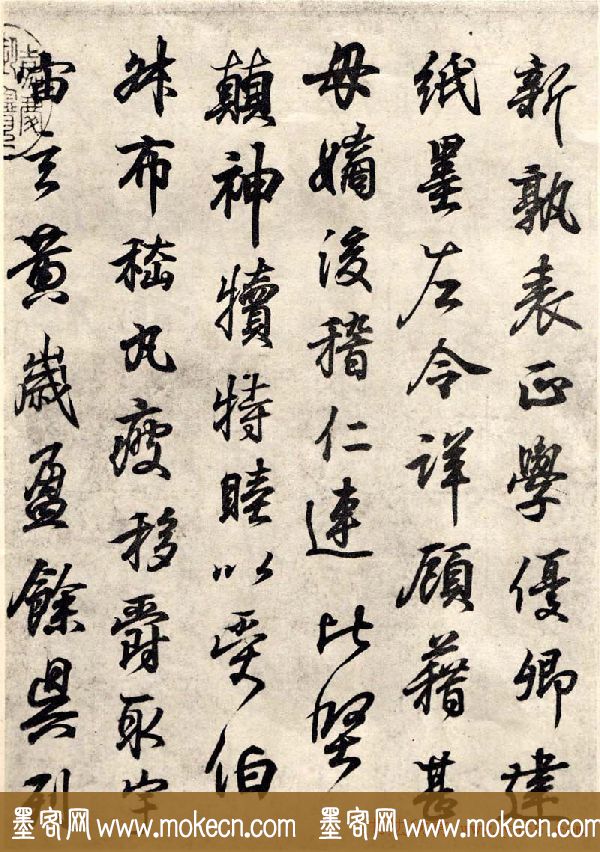 新孰表正學優卿建
紙墨左令詳顧藉甚
母嫡後稽仁連比堅
顛神犢特睦以受伯
布嵇丸移爵取宇
宙玄黃歲盈餘具列
墨客网 www.mokecn.com 墨客网 www.mokecn.com